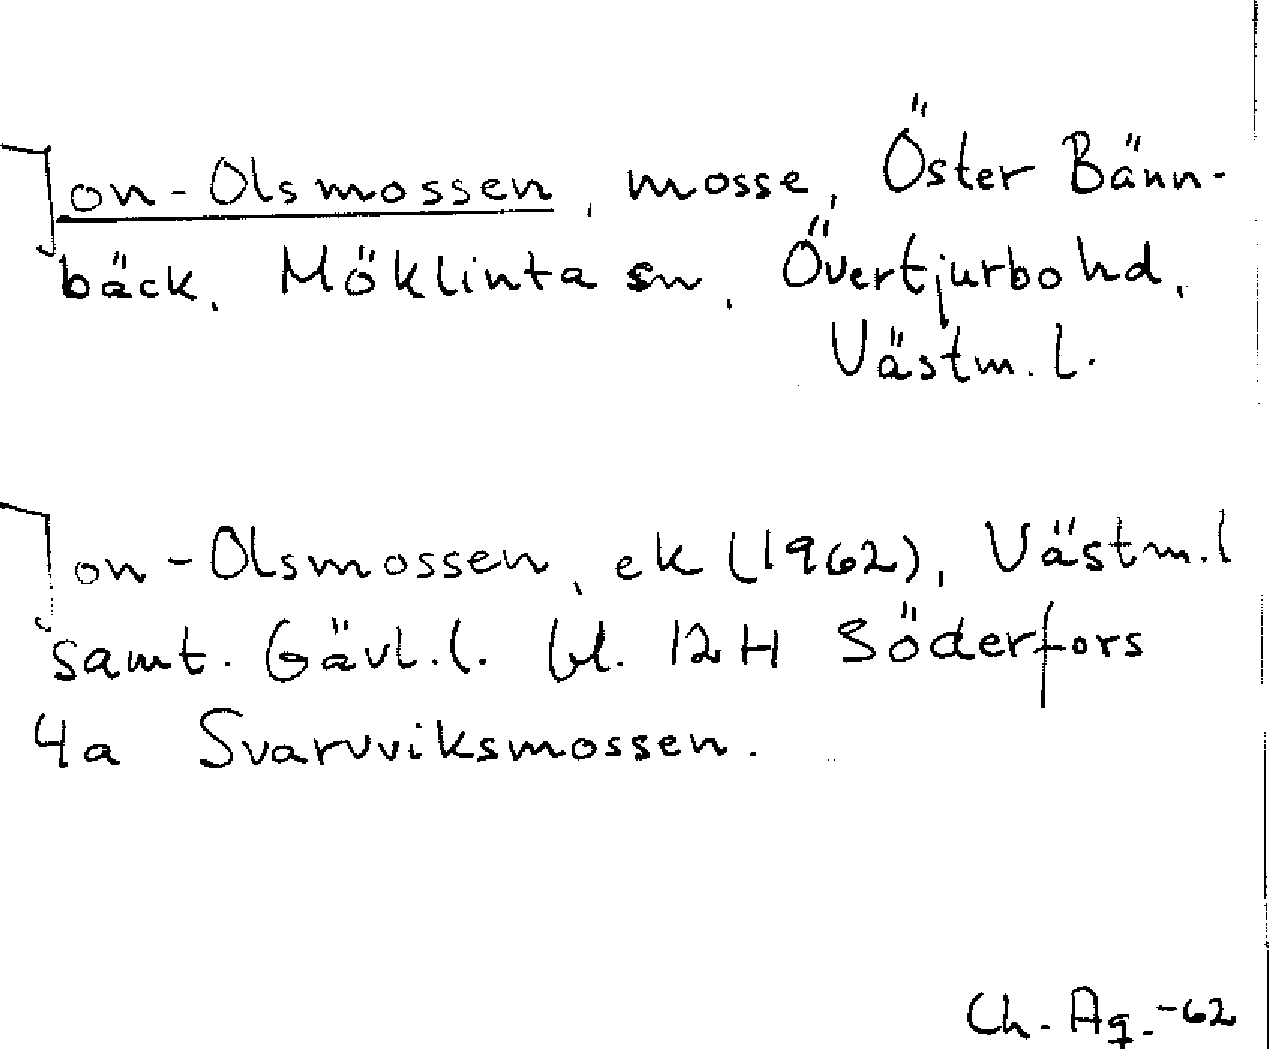 Jon-Olsmossen, mosse, Öster Bänn-
bäck, Möklinta sn, Övertjurbo hd,
Västm. l.
Jon-Olsmossen, ek (1962), Västm. l
samt. Gävl. l. bl. 12 H Söderfors
4a Svarvviksmossen.
Ch. Ag. -62